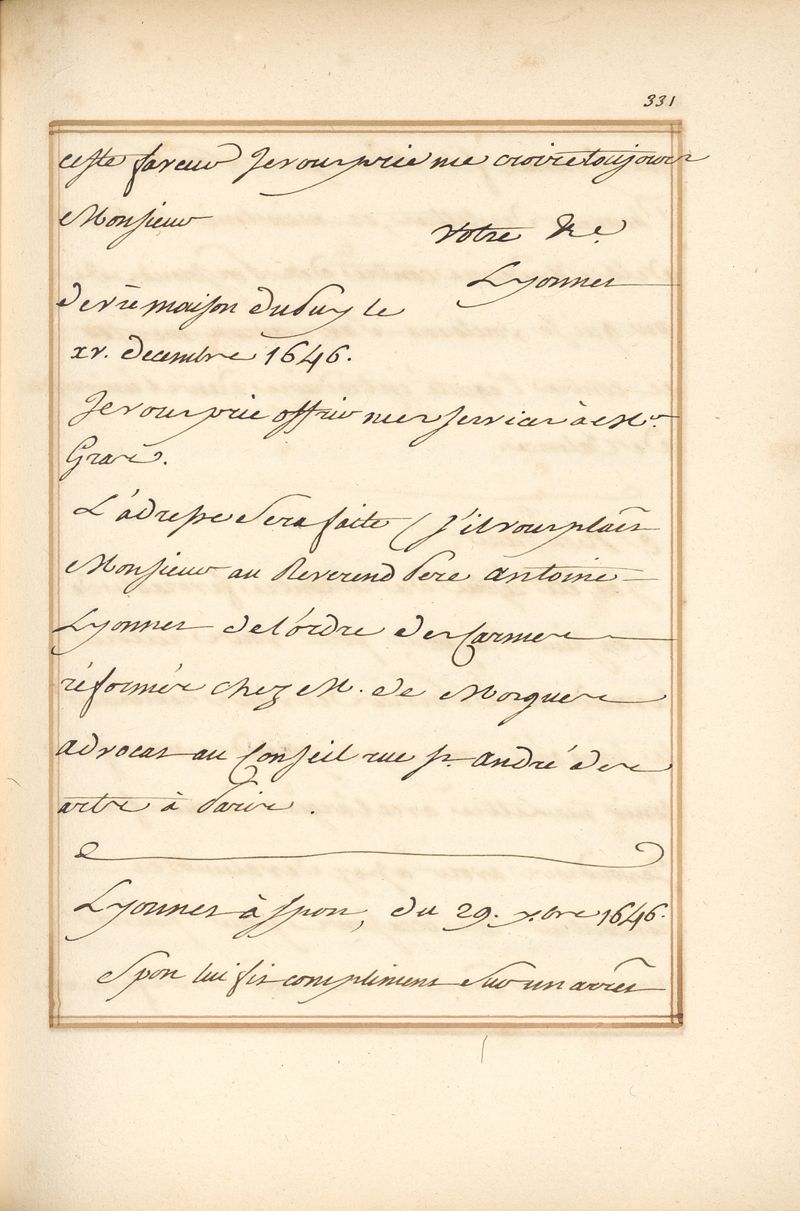 331
ceste faveur Je vous prie me croire toujours
Monsieur
Votre &c.
Lyonnet
De vre maison du Puy le
xv. decembre 1646.
Je vous prie offrir mes services à Mr.
Gras.
L'adresse sera faite (s'il vous plaît
Monsieur au Reverend Pere Antoine
Lyonnet de l'ordre des Carmes
réformés chez M. de Morgues
advocat au Conseil rue St. André des
arts à Paris.
Lyonnet à Spon, du 29. xbre 1646.
Spon lui fit compliment sur un arrêt